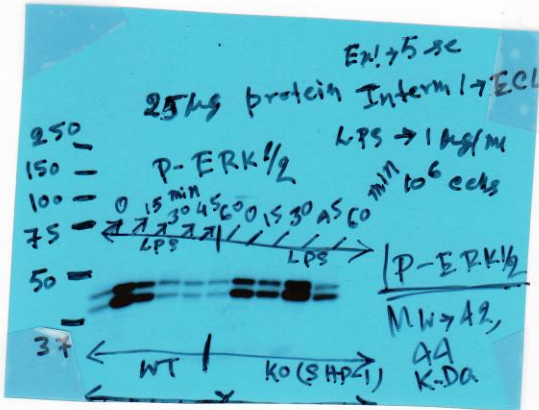 Ex! → 5 sec
25 µg protein Interm1 → ECL
LPS → 1 µg/ml
P-ERK1/2
min 10⁶ cells
250
150
100
75
50
37
min
0 15 30 45 60 0 15 30 45 60
LPS LPS
P-ERK1/2
MW → 42,
44
K-Da
WT KO (SHP-1)